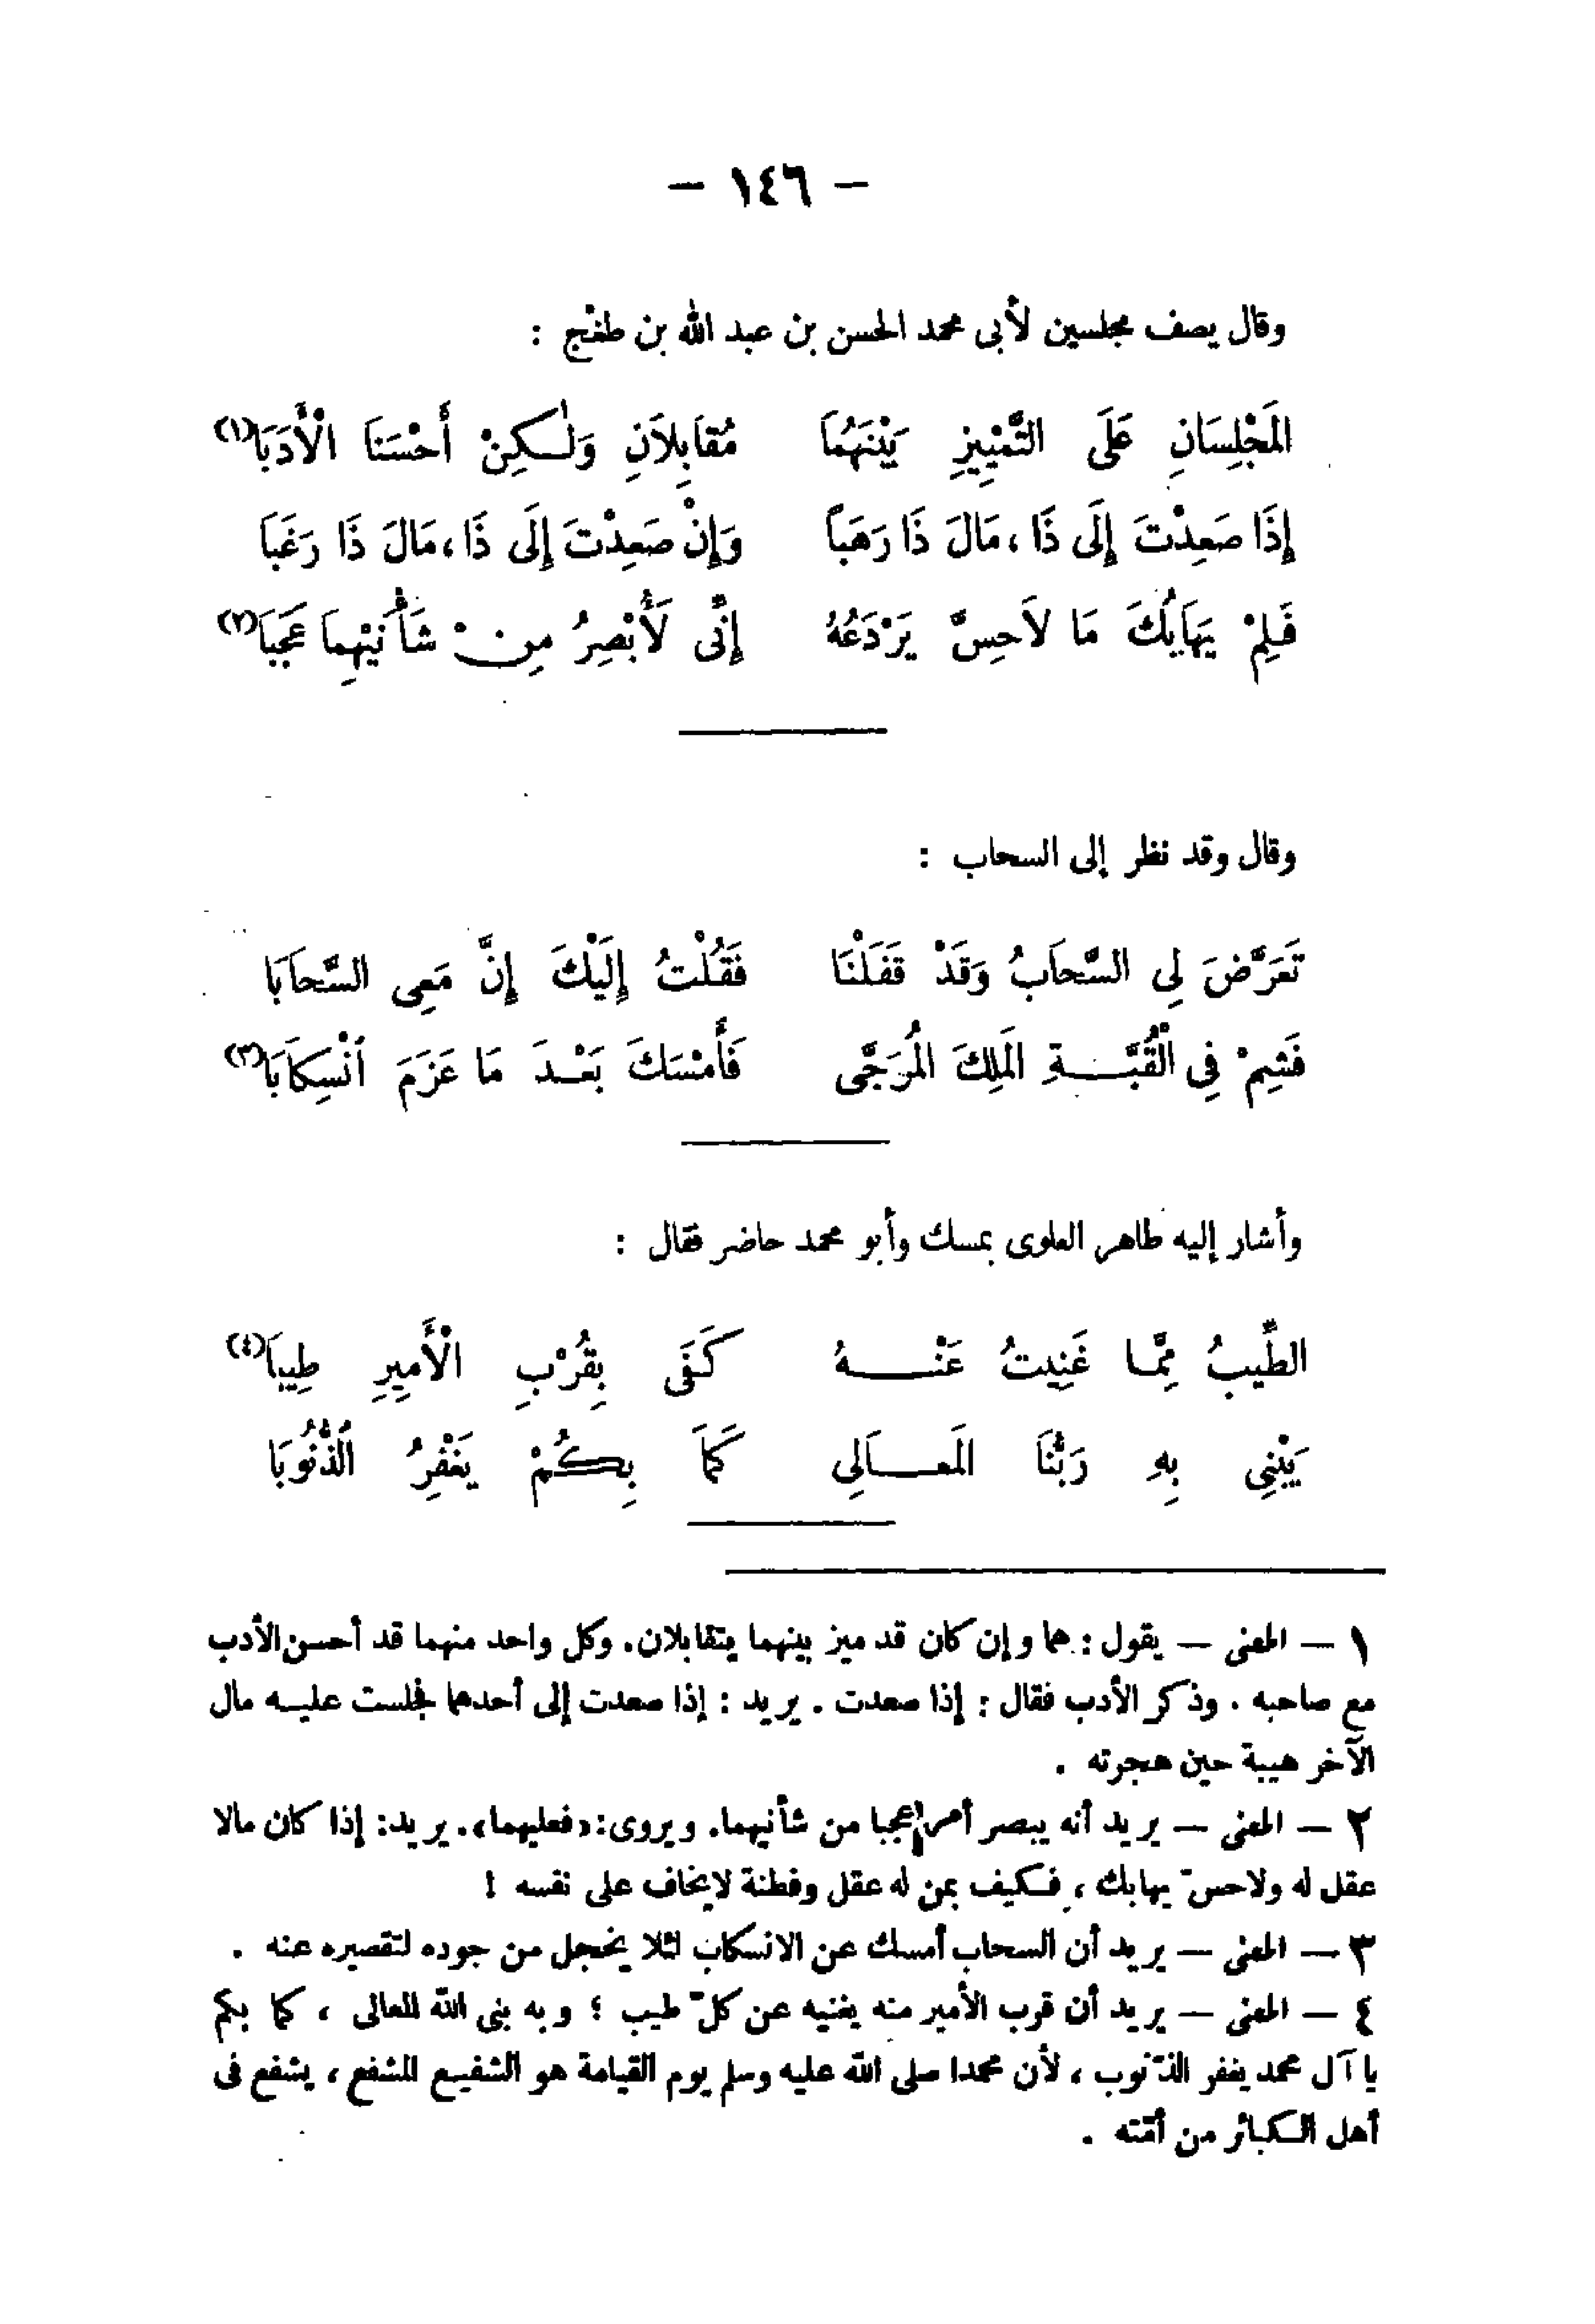 — ١٤٦ —
وقال يصف مجلسين لأبى محمد الحسن بن عبد الله بن طغْج :
المَجْلِسَانِ عَلَى التَّمْيِيزِ بَيْنَهُمَا مُقَابِلاَنِ وَلٰكِنْ أَحْسَنَا الْأَدَبَا(١)
إِذَا صَعِدْتَ إِلَى ذَا ، مَالَ ذَا رَهَبًا وَإِنْ صَعِدْتَ إِلَى ذَا ، مَالَ ذَا رَغَبَا
فَلِمْ يَهَابُكَ مَا لاَ حِسَّ يَرْدَعُهُ إِنِّى لَأُبْصِرُ مِنْ شَأْنَيْهِمَا عَجَبَا(٢)
وقال وقد نظر إلى السحاب :
تَعَرَّضَ لِى السَّحَابُ وَقَدْ قَفَلْنَا فَقُلْتُ إِلَيْكَ إِنَّ مَعِى السَّحَابَا
فَشِمْ فِى الْقُبَّةِ المَلِكَ المُرَجَّى فَأَمْسَكَ بَعْدَ مَا عَزَمَ انْسِكَابَا(٣)
وأشار إليه طاهر العلوى بمسك وأبو محمد حاضر فقال :
الطِّيبُ مِمَّا غَنِيتُ عَنْهُ كَفَى بِقُرْبِ الْأَمِيرِ طِيبَا(٤)
يَبْنِى بِهِ رَبُّنَا المَعَالِى كَمَا بِكُمْ يَغْفِرُ الذُّنُوبَا
١ — المعنى — يقول : هما وإن كان قد ميز بينهما يتقابلان. وكل واحد منهما قد أحسن الأدب
مع صاحبه . وذكر الأدب فقال : إذا صعدت . يريد : إذا صعدت إلى أحدهما فجلست عليه مال
الآخر هيبة حين هجرته .
٢ — المعنى — يريد أنه يبصر أمرا عجبا من شأنيهما. ويروى: «فعليهما». يريد: إذا كان مالا
عقل له ولا حسّ يهابك ، فكيف بمن له عقل وفطنة لا يخاف على نفسه !
٣ — المعنى — يريد أن السحاب أمسك عن الانسكاب لئلا يخجل من جوده لتقصيره عنه .
٤ — المعنى — يريد أن قرب الأمير منه يغنيه عن كلّ طيب ؛ وبه بنى الله المعالى ، كما بكم
يا آل محمد يغفر الذّنوب ، لأن محمدا صلى الله عليه وسلم يوم القيامة هو الشفيع المشفع ، يشفع فى
أهل الكبائر من أمّته .